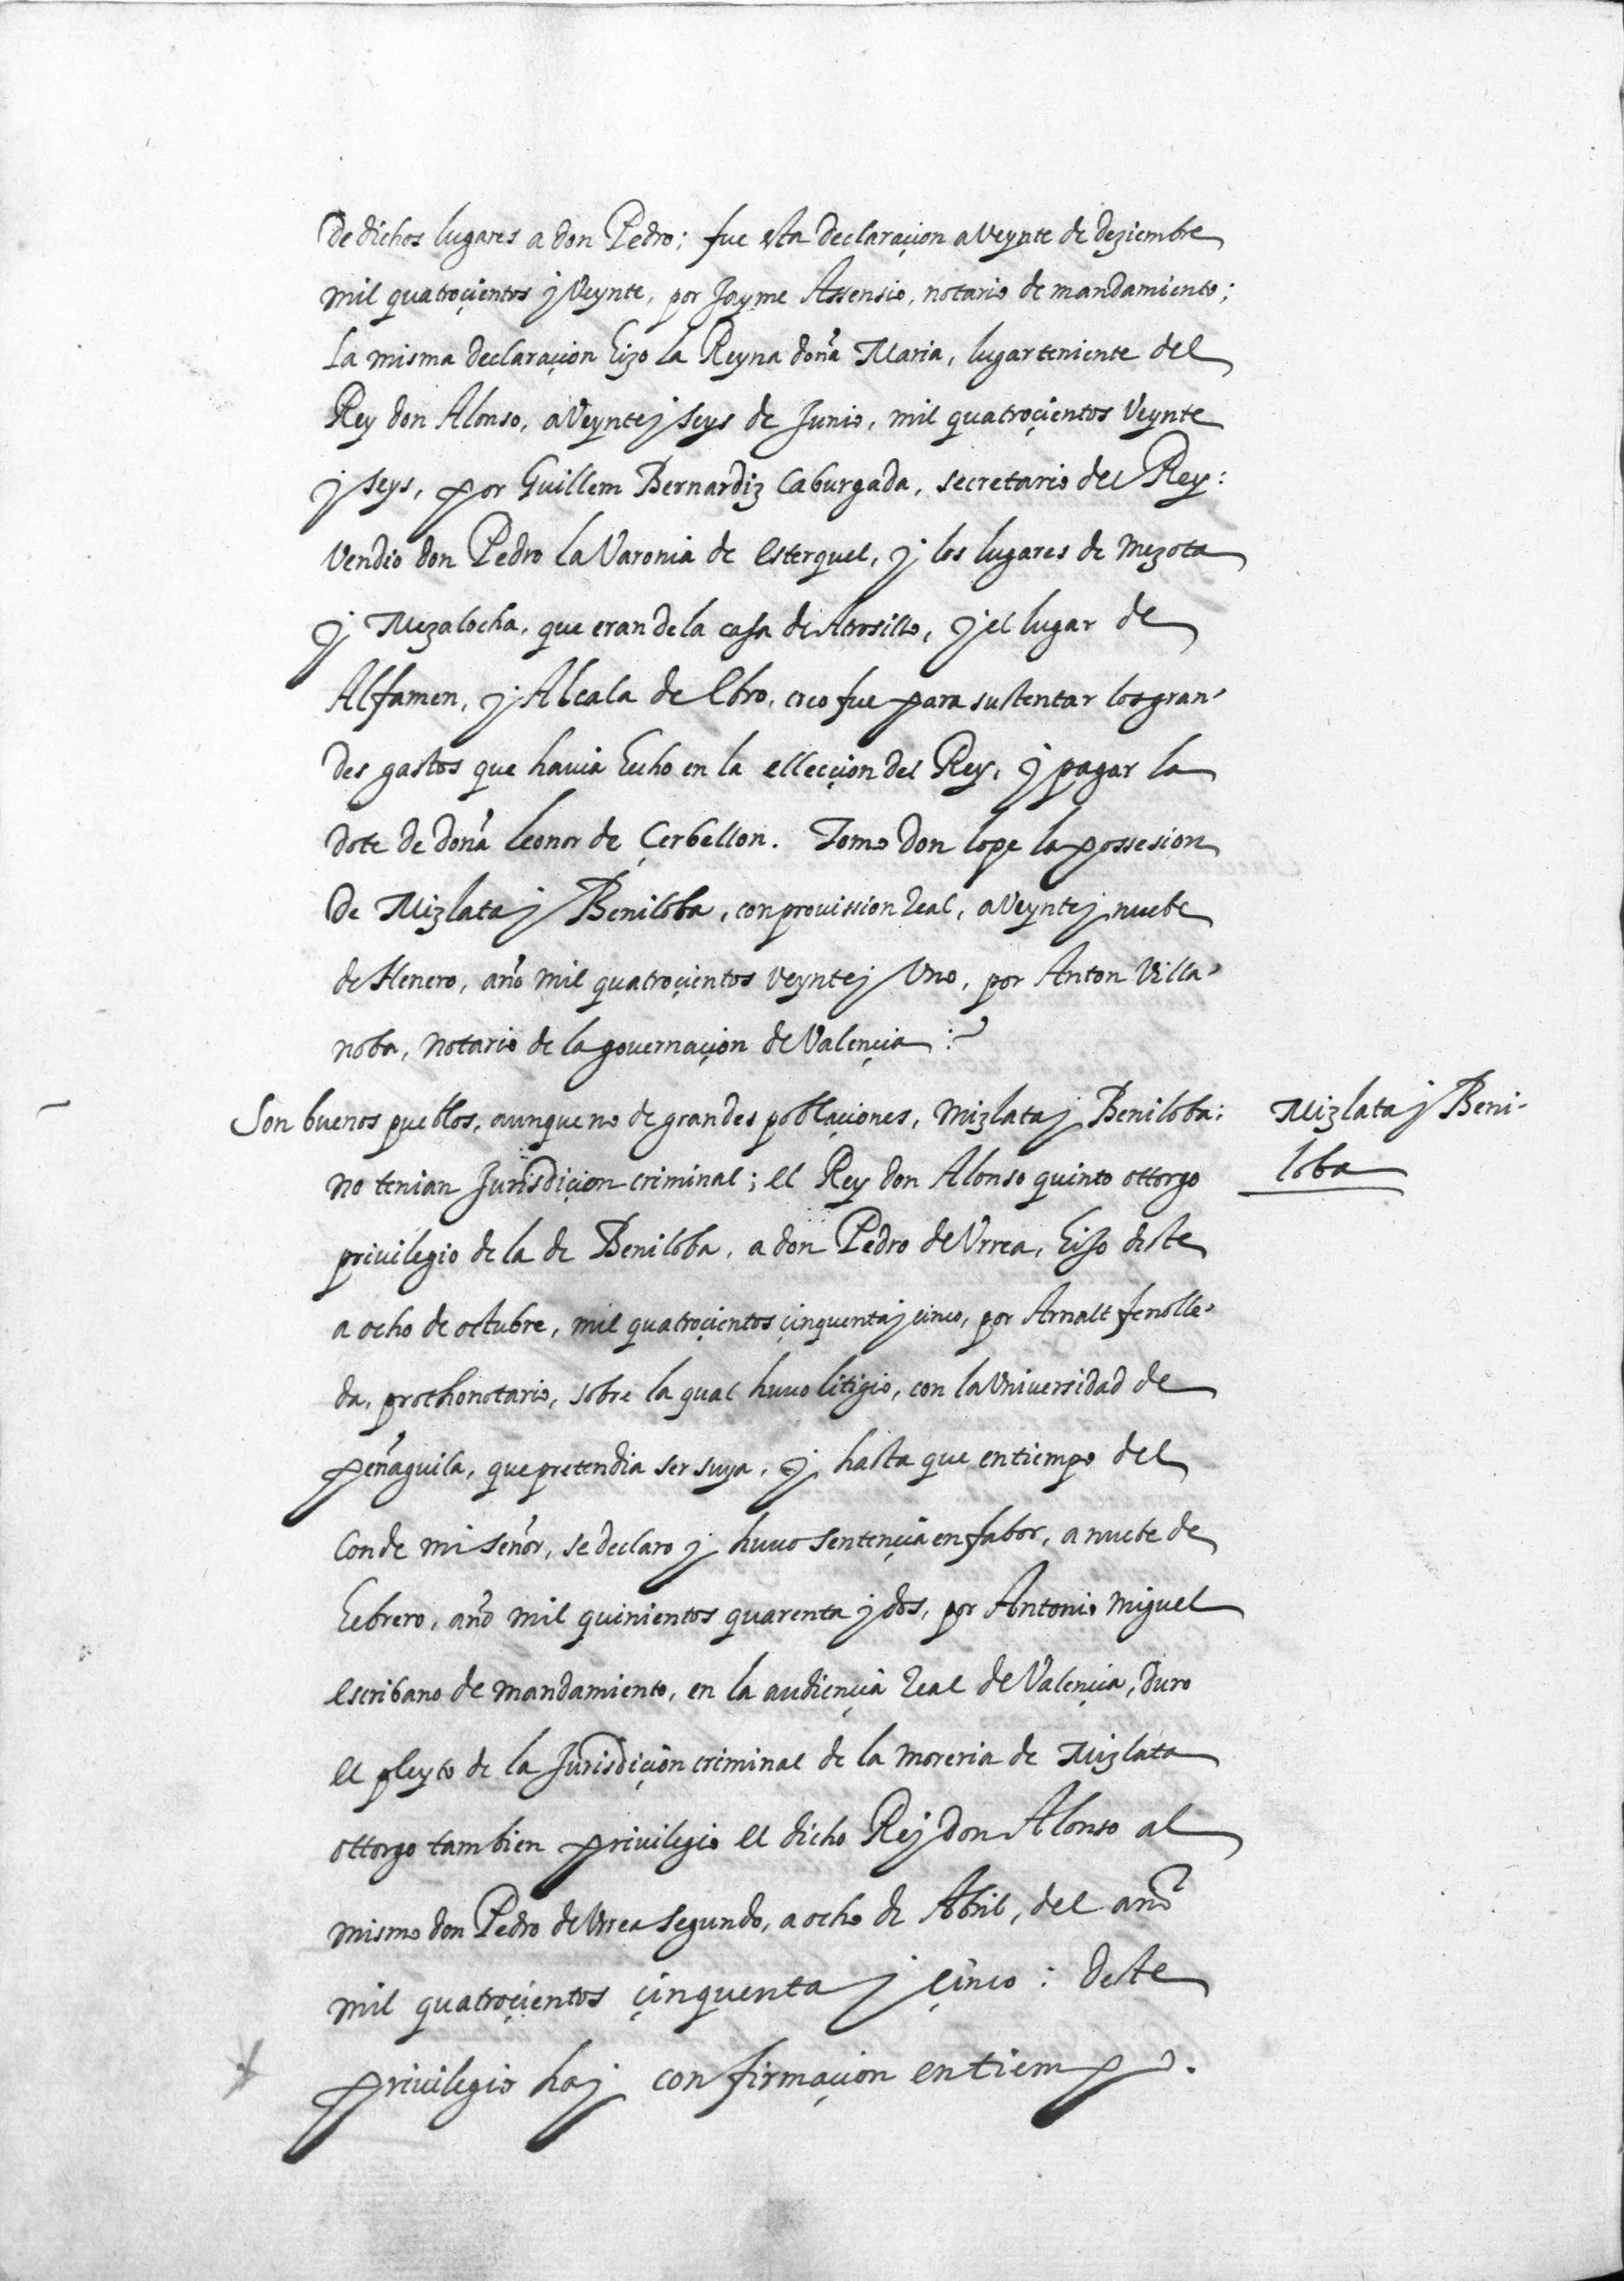 de dichos lugares a don Pedro; fue esta declaraçion a Veynte de deziembre
mil quatroçientos j Veynte, por Jayme Assensio, notario de mandamiento;
La misma declaraçion hizo la Reyna doña Maria, lugarteniente del
Rey don Alonso, a Veynte j seys de Junio, mil quatroçientos Veynte
j seys, por Guillem Bernardiz Caburgada, secretario del Rey:
Vendio don Pedro la Varonia de Esterquel, j los lugares de Mezota
j Mezalocha, que eran de la casa de Atrosillo, j el lugar de
Alfamen, j Alcala de Ebro, creo fue para sustentar los gran-
des gastos que havia hecho en la ellecçion del Rey, j pagar la
dote de doña Leonor de Çerbellon. Tomo don Lope la possesion
de Mizlata j Beniloba, con provission Real, a Veynte j nuebe
de Henero, año mil quatroçientos veynte j Uno, por Anton Villa-
noba, notario de la governaçion de Valençia :~
Son buenos pueblos, aunque no de grandes poblaçiones, Mizlata j Beniloba:
Mizlata j Beni-
loba
no tenian Jurisdiçion criminal; el Rey don Alonso quinto ottorgo
privilegio de la de Beniloba, a don Pedro de Urrea, hijo deste
a ocho de octubre, mil quatroçientos çinquenta j cinco, por Arnalt fenolle-
da, prothonotario, sobre la qual huvo litigio, con la Universidad de
peñaguila, que pretendia ser suya, j hasta que en tiempo del
Conde mi señor, se declaro j huvo sentençia en fabor, a nuebe de
hebrero, año mil quinientos quarenta j dos, por Antonio Miguel
escribano de mandamiento, en la audiençia Real de Valençia, duro
el pleyto de la Jurisdiçion criminal de la moreria de Mizlata
ottorgo tambien privilegio el dicho Rej don Alonso al
mismo don Pedro de Urrea segundo, a ocho de Abril, del año
mil quatroçientos çinquenta j çinco : deste
privilegio haj confirmaçion en tiempo.